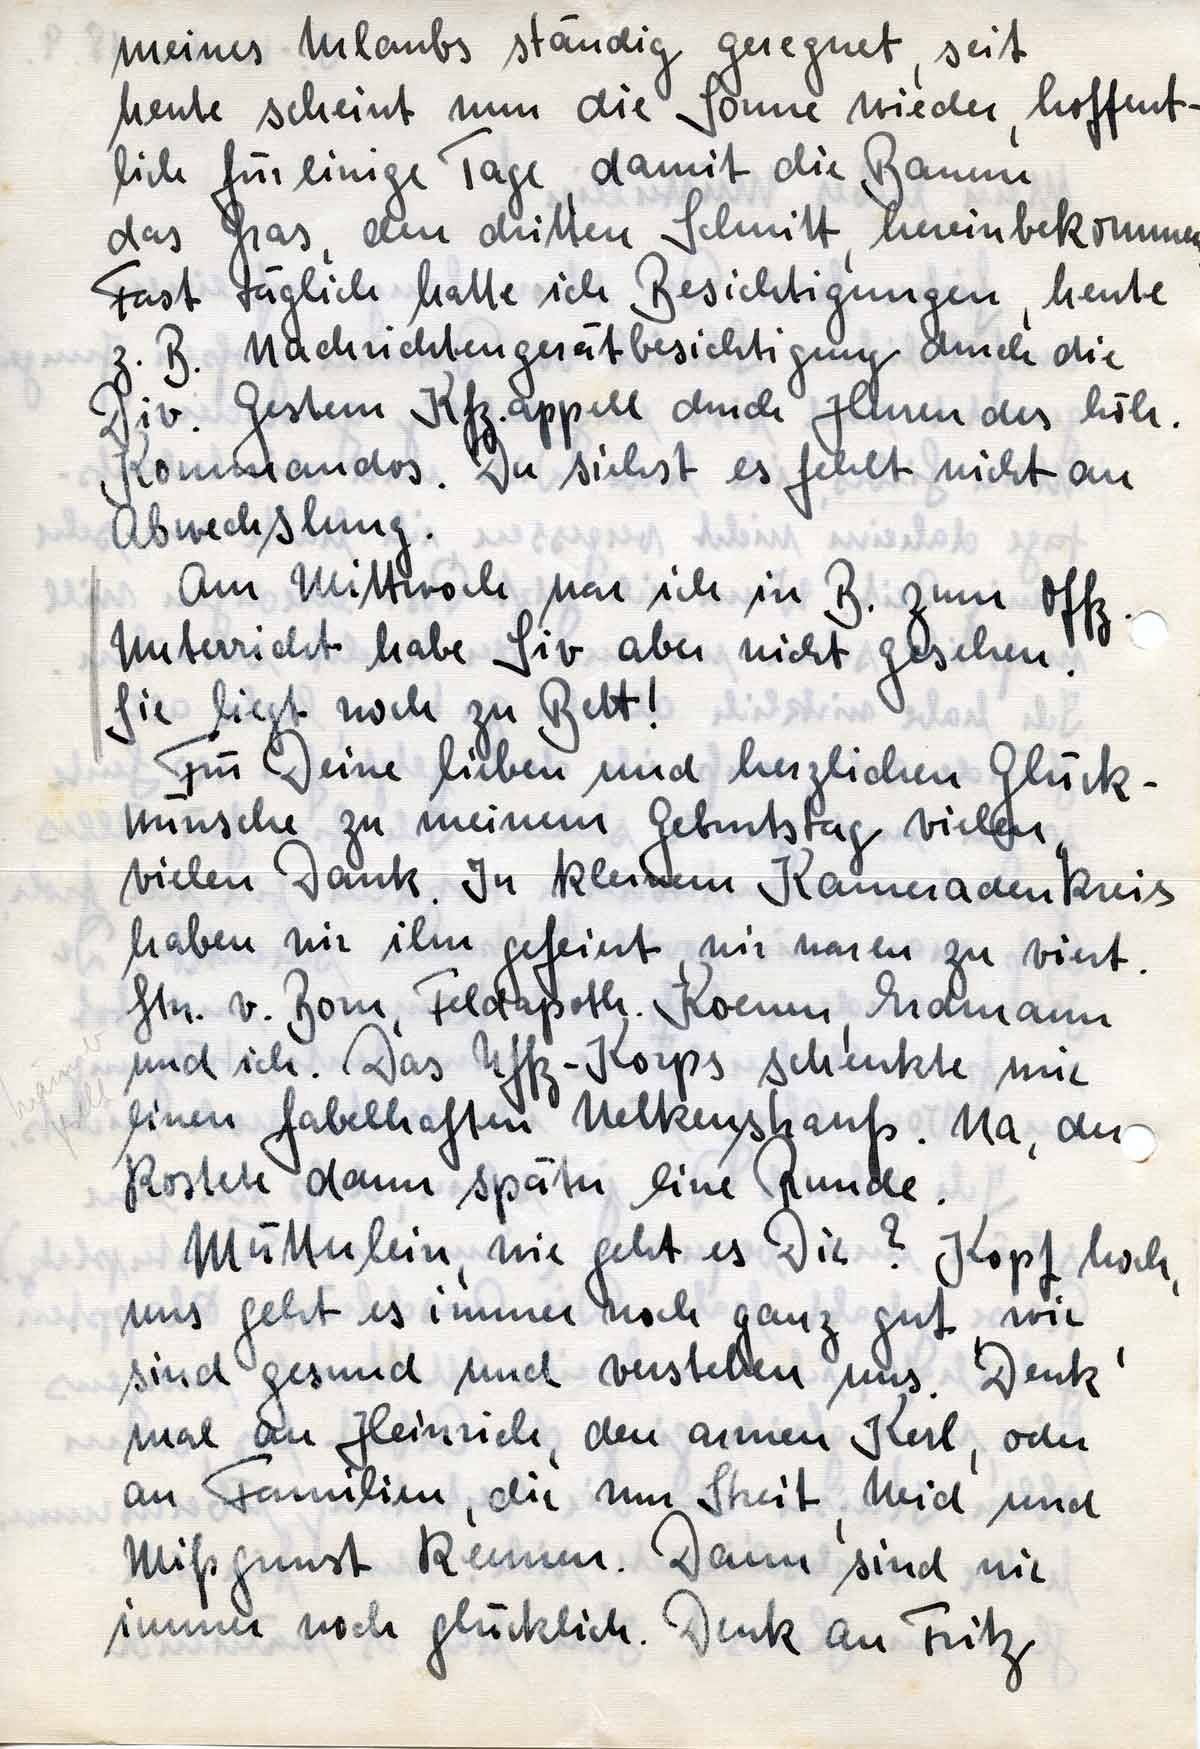 meines Urlaubs ständig geregnet, seit
heute scheint nun die Sonne wieder, hoffent-
lich für einige Tage, damit die Bauern
das Gras, den dritten Schnitt, hereinbekommen
Fast täglich hatte ich Besichtigungen, heute
z. B. Nachrichtengerätbesichtigung durch die
Div. Gestern Kfz.appell durch Herren des höh.
Kommandos. Du siehst es fehlt nicht an
Abwechslung.
Am Mittwoch war ich in B. zum Offz.
Unterricht habe Siv aber nicht gesehen.
Sie liegt noch zu Bett!
Für Deine lieben und herzlichen Glück-
wünsche zu meinem Geburtstag vielen,
vielen Dank. In kleinem Kameradenkreis
haben wir ihn gefeiert, wir waren zu viert.
v. Born, Feldapoth. Erdmann
und ich. Das Uffz-Korps schenkte mir
einen fabelhaften Nelkenstrauß. Na, der
kostete dann später eine Runde.
Mütterlein, wie geht es Dir? Kopf hoch,
uns geht es immer noch ganz gut, wir
sind gesund und verstehen uns. Denk'
mal an Heinrich, den armen Kerl, oder
an Familien, die nur Streit, Neid und
Mißgunst kennen. Dann sind wir
immer noch glücklich. Denk an Fritz